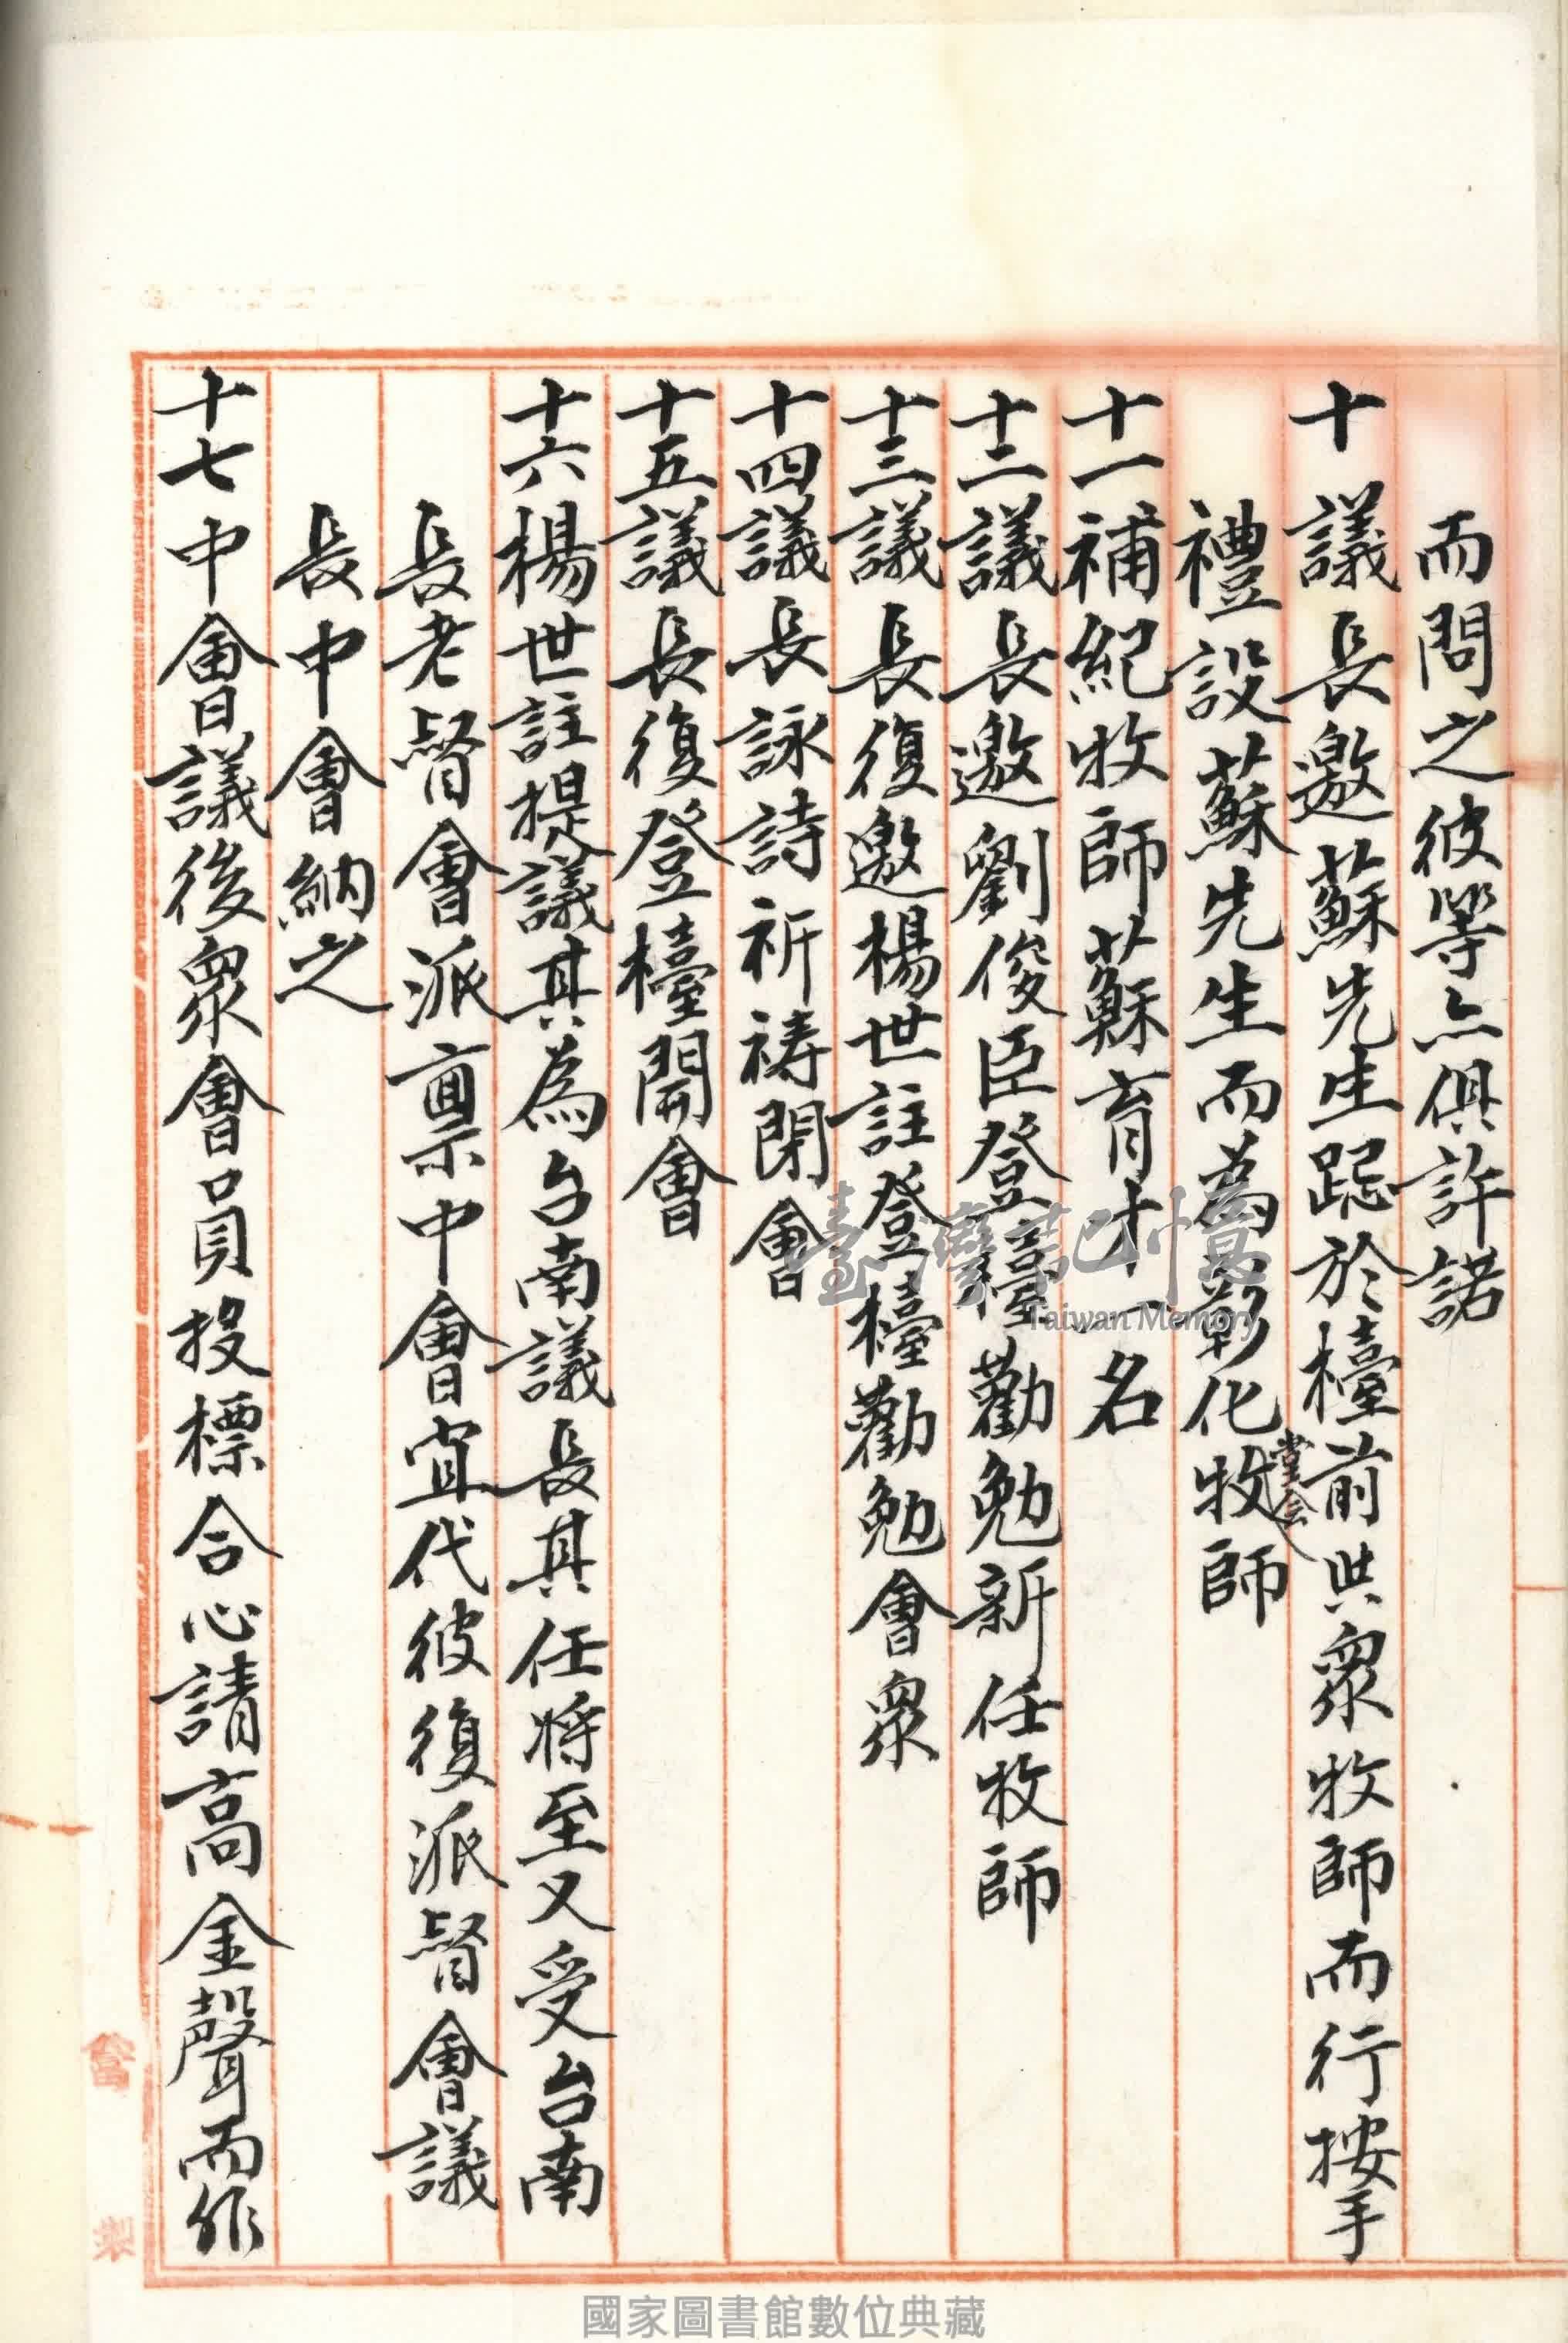 而問之彼等亦俱許諾
十議長邀蘇先生跽於檯前共眾牧師而行按手
禮設蘇先生而為彰化堂会牧師
十一補紀牧師蘇育才一名
十二議長邀劉俊臣登檯勸勉新任牧師
十三議長復邀楊世註登檯勸勉會眾
十四議長詠詩祈禱閉會
十五議長復登檯開會
十六楊世註提議其為台南議長其任將至又受台南
長老督會派稟中會宜代彼復派督會議
長中會納之
十七中會議後眾會員投標合心請高金聲而作
臺灣記憶
Taiwan Memory
國家圖書館數位典藏